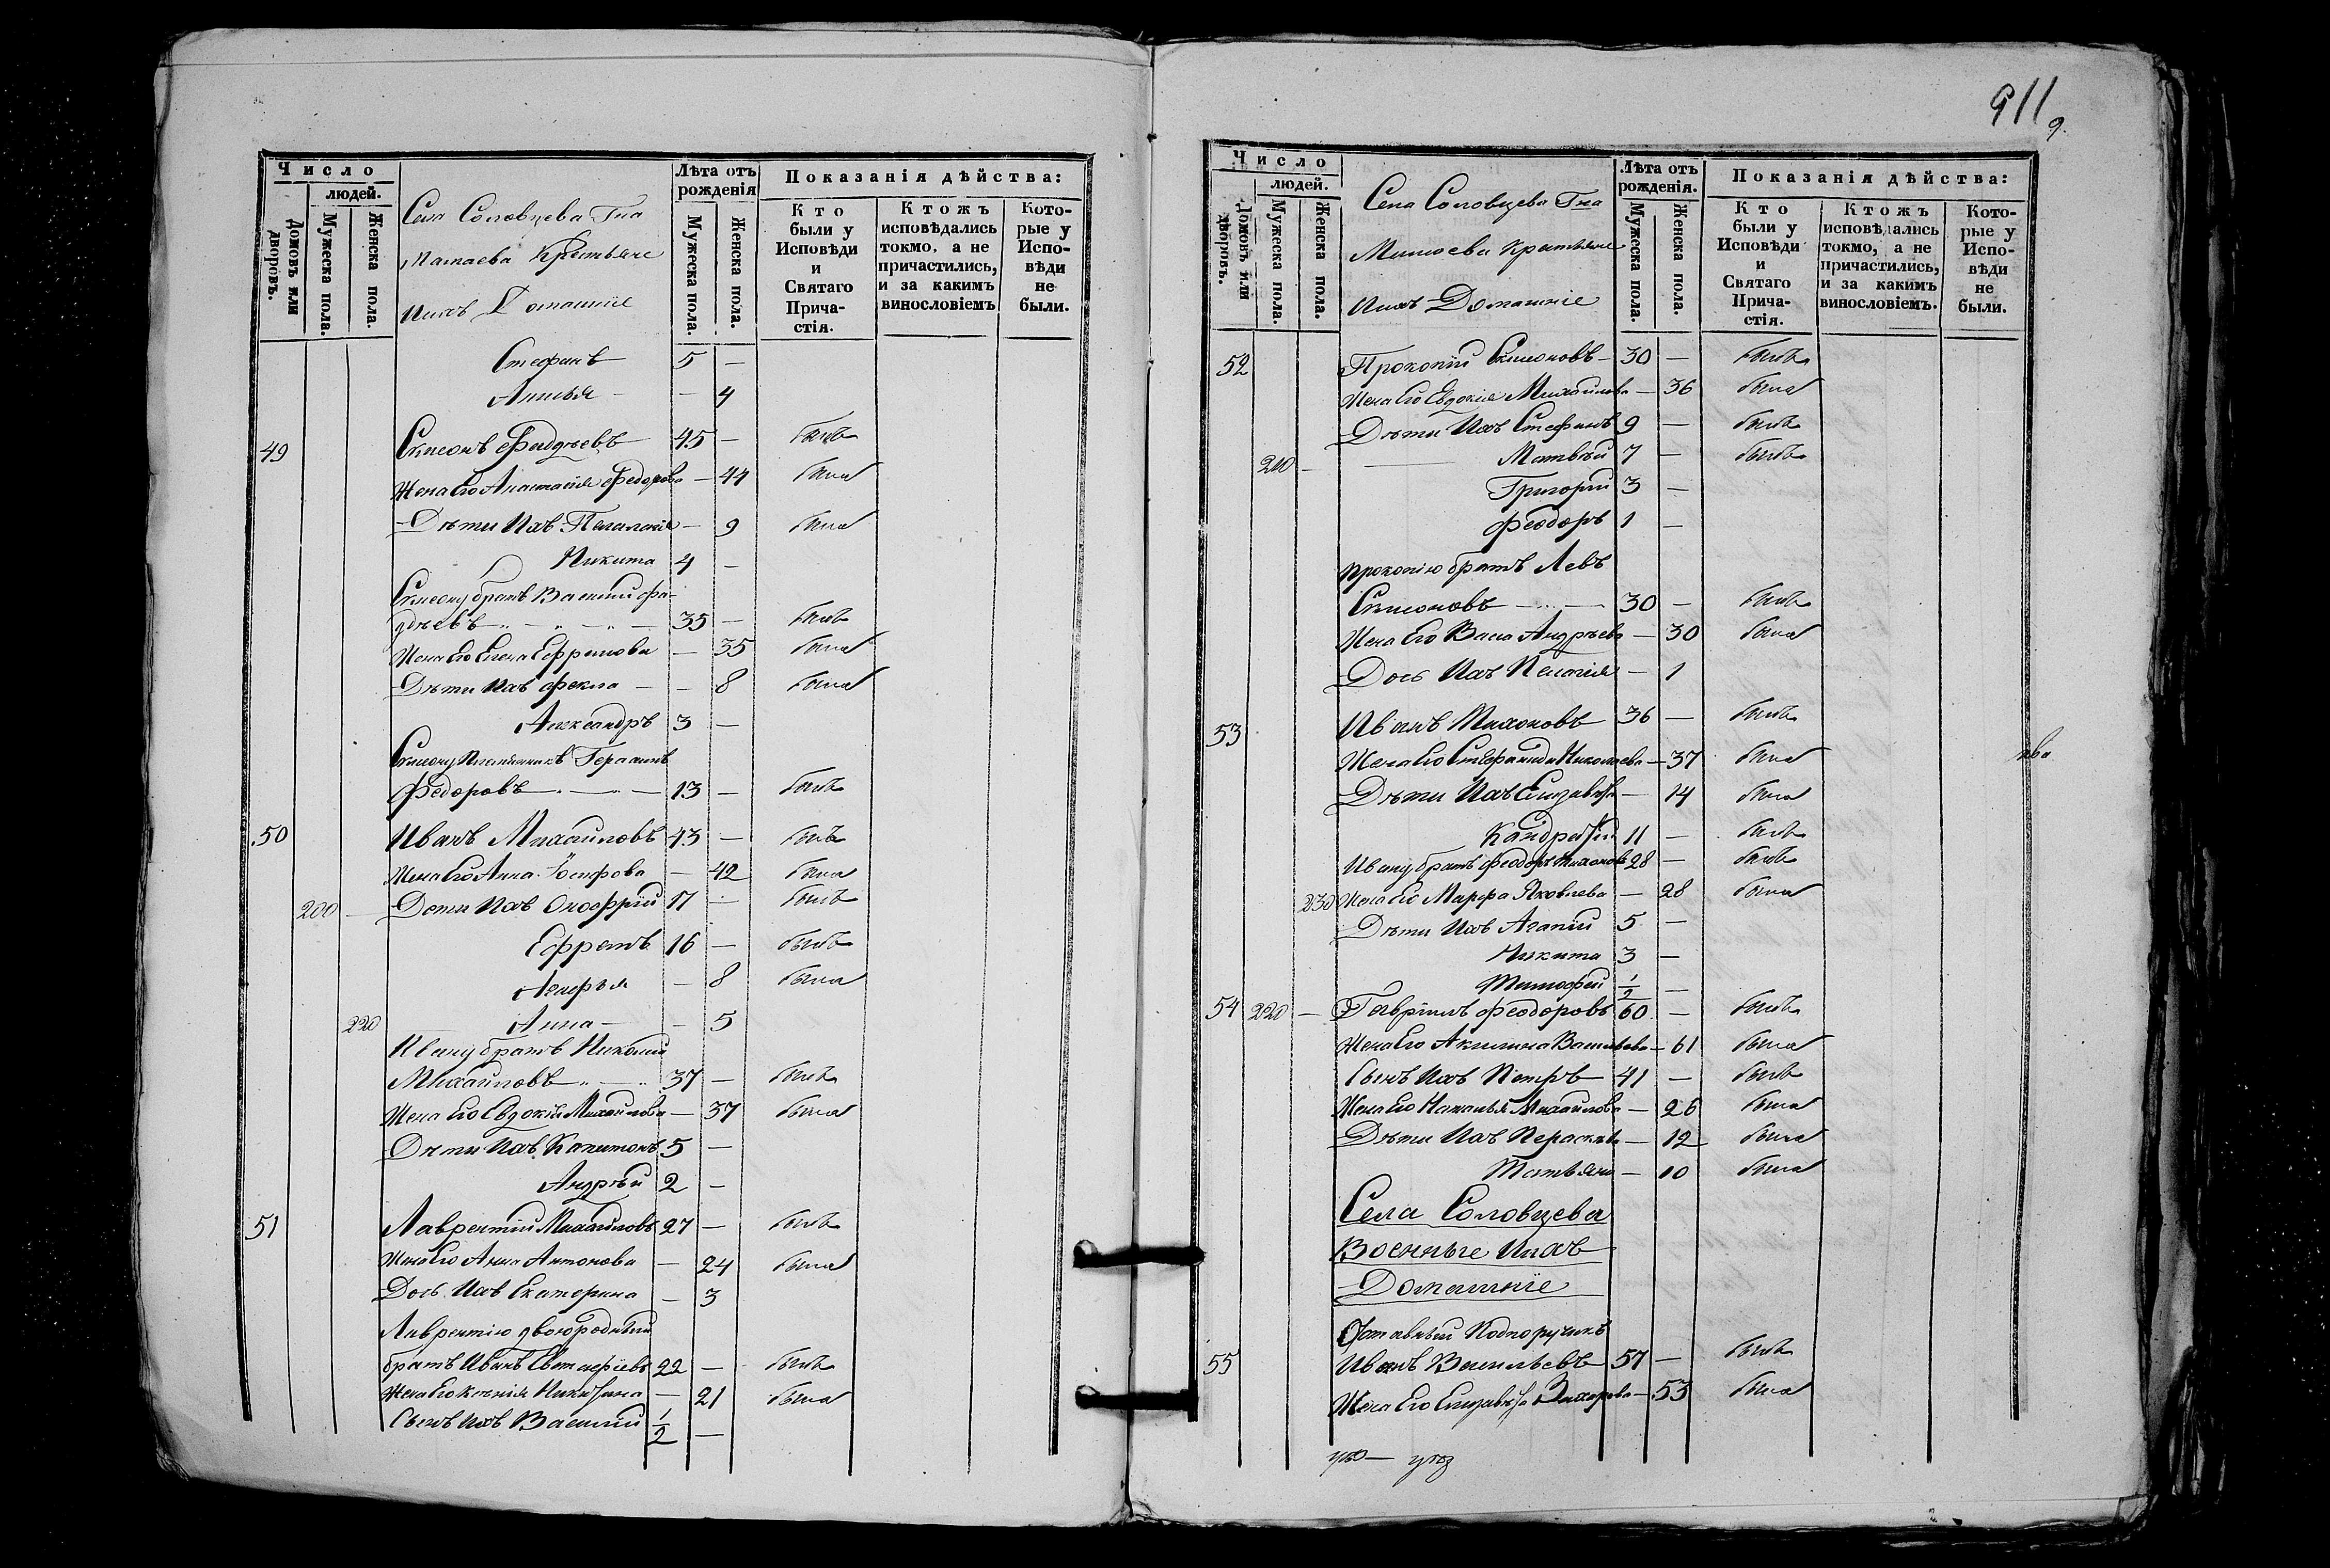 Число
людей.
Домовъ или дворовъ.
Мужеска пола.
Женска пола.
Села Соловцева Гна
Матаева Крестьяне
Ихъ Домашніе
Лѣта отъ рожденія
Мужеска пола.
Женска пола.
Показанія дѣйства:
Кто были у Исповѣди и Святаго Причастія.
Ктожъ исповѣдались токмо, а не причастились, и за какимъ винословіемъ
Которые у Исповѣди не были.
Стефанъ 5 —
— 4
49 Симеонъ Фадѣевъ 45 — былъ
Жена Его Анастасія Федорова — 44 была
Дѣти Ихъ Пелагія — 9 была
Никита 4 —
Симеону братъ Василій Фа-
дѣевъ 35 — былъ
Жена Его Елена Ефремова — 35 была
Дѣти Ихъ Фекла — 8 была
Александръ 3 —
Симеону Племянникъ Герасимъ
Федоровъ — 13 — былъ
50 Иванъ Михайловъ 43 — былъ
Жена Его Анна Іосифова — 42 была
200 — Дети Ихъ Онофрій 17 — былъ
Ефремъ 16 — былъ
— 8 была
220 Анна — 5
Ивану братъ Николай
Михайловъ 37 —  былъ
Жена Его Евдокія Михайлова — 37 была
Дѣти Ихъ Капитонъ 5 —
Андрѣй 2 —
51 Лаврентій Михайловъ 27 — былъ
Жена Его Анна Антонова — 24 была
Дочь Ихъ Екатерина — 3
Лаврентію двоюродный
братъ Иванъ Евстафіевъ 22 — былъ
Жена Его Ксенія Никитина — 21 была
Сынъ Ихъ Василій 1/2 —
911
9.
Число
людей.
Домовъ или дворовъ.
Мужеска пола.
Женска пола.
Села Соловцева Гна
Матаева Крестьяне
Ихъ Домашніе
Лѣта отъ рожденія.
Мужеска пола.
Женска пола.
Показанія дѣйства:
Кто были у Исповѣди и Святаго Причастія.
Ктожъ исповѣдались токмо, а не причастились, и за какимъ винословіемъ.
Которые у Исповѣди не были.
52 Прокопій Симеоновъ — 30 — былъ
Жена Его Евдокія Михайлова — 36 была
Дѣти Ихъ Стефанъ 9 — былъ
210 — Матвѣй 7 — былъ
Григорій 3 —
Феодоръ 1 —
Прокопію братъ Левъ
Симеоновъ — 30 — былъ
Жена Его Васса Андрѣева — 30 была
Дочь Ихъ Пелагія — 1
53 Иванъ Тихоновъ 36 — былъ
Жена Его Стефанида Николаева — 37 была
Дѣти Ихъ Елизавѣта — 14 была
Кондратій 11 — былъ
Ивану братъ Феодоръ Тихоновъ 28 — былъ
230 Жена Его Марфа Яковлева — 28 была
Дѣти Ихъ Агапій 5 —
Никита 3 —
Тимофей 1/2 —
54 220 — Гавріилъ Феодоровъ 60 — былъ
Жена Его Акилина Васильева — 61 была
Сынъ Ихъ Петръ — 41 — былъ
Жена Его Наталья Михайлова — 26 была
Дѣти Ихъ Пераскева — 12 была
Татьяна — 10 была
Села Соловцева
Военные Ихъ
Домашніе
Отставный Подпоручикъ
55 Иванъ Васильевъ 57 — былъ
Жена Его Елизавѣта Захарова — 53 была